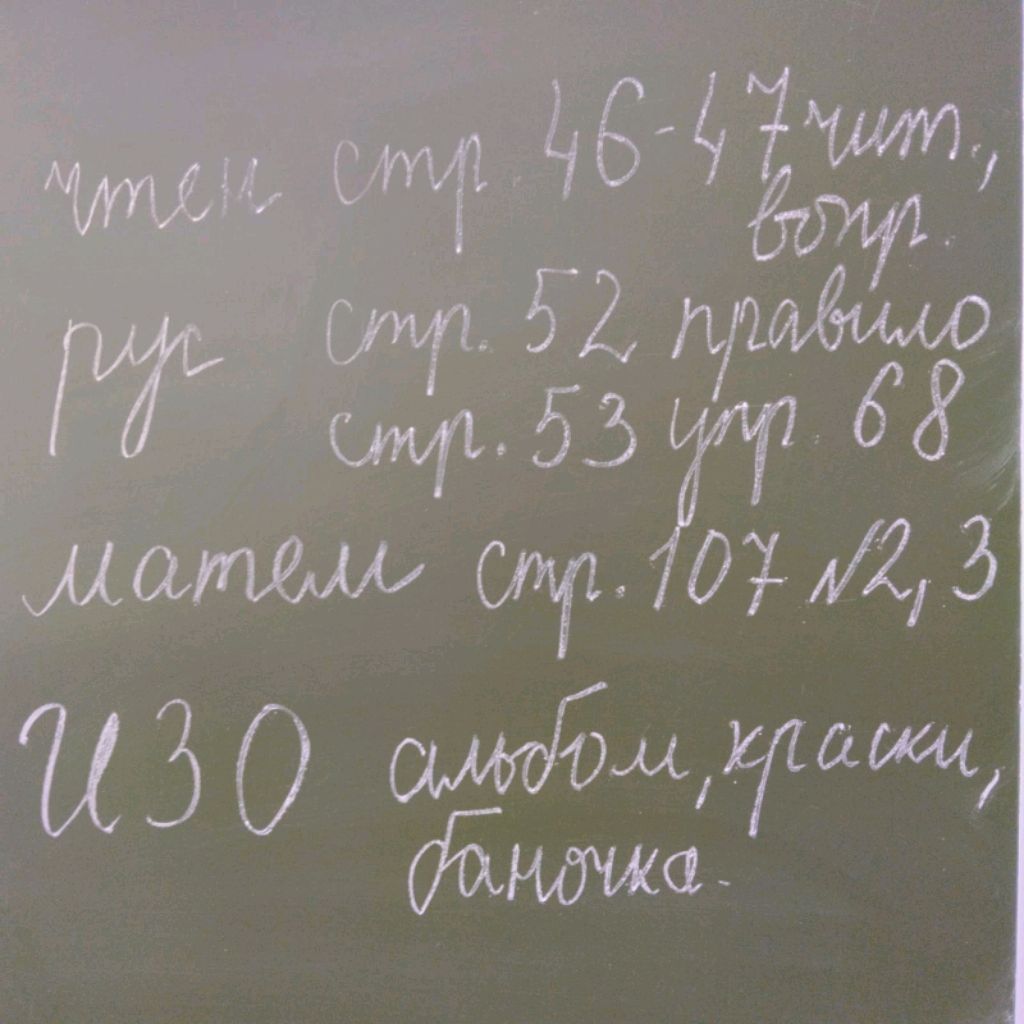 чтен стр. 46-47 чит.,
вопр.
рус стр. 52 правило
стр. 53 упр 68
матем стр. 107 №2, 3
ИЗО альбом, краски,
баночка.